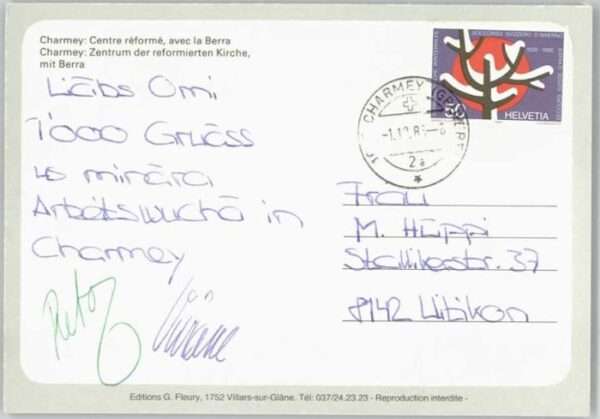 Charmey: Centre réformé, avec la Berra
Charmey: Zentrum der reformierten Kirche,
mit Berra
Liäbs Omi
1'000 Grüäss
us minära
Arbeitswuchä in
Charmey
Reto
Viviane
HELVETIA
CHARMEY (GRUYÈRE)
2a
Frau
M. Hüppi
Stallikerstr. 37
8142 Uitikon
Editions G. Fleury, 1752 Villars-sur-Glâne. Tél: 037/24.23.23 - Reproduction interdite -